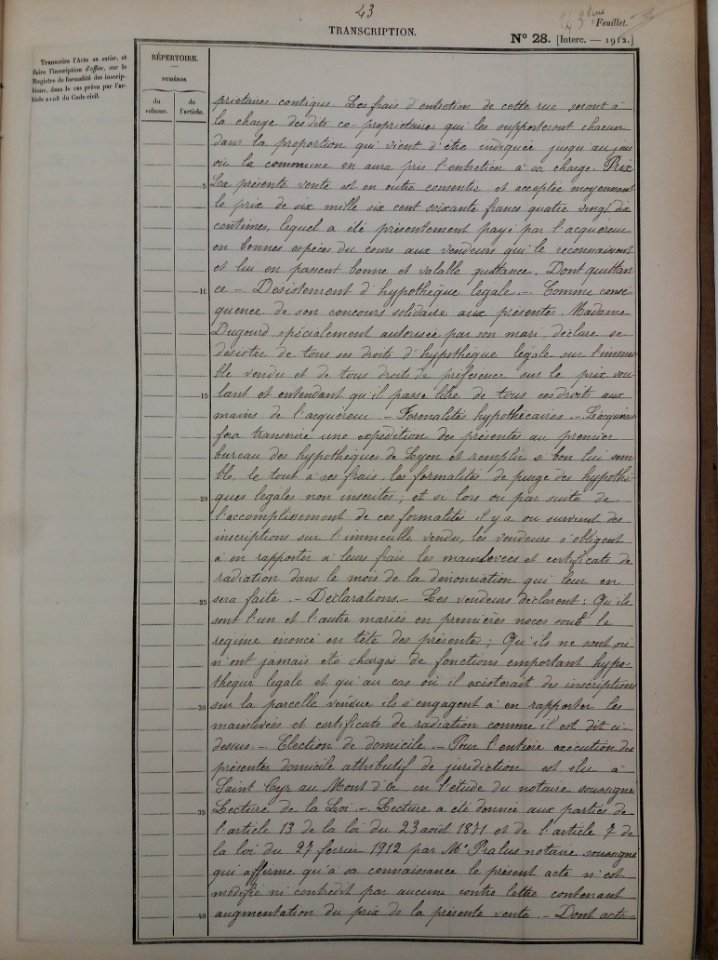 43
43ème Feuillet.
TRANSCRIPTION.
N° 28. [Interc. — 1912.]
Transcrire l'Acte en entier, et
faire l'inscription d'office, sur le
Registre de formalité des inscrip-
tions, dans le cas prévu par l'ar-
ticle 2108 du Code civil.
RÉPERTOIRE.
NUMÉROS
du volume.
de l'article.
priétaires contigus. Les frais d'entretien de cette rue seront à
la charge desdits co-propriétaires qui les supporteront chacun
dans la proportion qui vient d'être indiquée jusqu'au jour
où la commune en aura pris l'entretien à sa charge. Prix
5 La présente vente est en outre consentie et acceptée moyennant
le prix de six mille six cent soixante francs quatre vingt dix
centimes, lequel a été présentement payé par l'acquéreur
en bonnes espèces du cours aux vendeurs qui le reconnaissent
et lui en passent bonne et valable quittance. Dont quittan
10 ce - Désistement d'hypothèque légale. - Comme consé
quence de son concours solidaire aux présentes Madame
Dugourd spécialement autorisée par son mari, déclare se
désister de tous ses droits d'hypothèque légale sur l'immeu
ble vendu et de tous droits de préférence sur le prix vou
15 lant et entendant qu'il passe libre de tous ces droits aux
mains de l'acquéreur - Formalités hypothécaires. - L'acquéreur
fera transcrire une expédition des présentes au premier
bureau des hypothèques de Lyon et remplir si bon lui sem
ble, le tout à ses frais, les formalités de purge des hypothè
20 ques légales non inscrites; et si lors ou par suite de
l'accomplissement de ces formalités il y a ou survient des
inscriptions sur l'immeuble vendu, les vendeurs s'obligent
à en rapporter à leurs frais les mainlevées et certificats de
radiation dans le mois de la dénonciation qui leur en
25 sera faite. - Déclarations. - Les vendeurs déclarent: Qu'ils
sont l'un et l'autre mariés en premières noces sous le
régime énoncé en tête des présentes; Qu'ils ne sont ou
n'ont jamais été chargés de fonctions emportant hypo-
thèque légale et qu'au cas où il existerait des inscriptions
30 sur la parcelle vendue ils s'engagent à en rapporter les
mainlevées et certificats de radiation comme il est dit ci-
dessus. - Election de domicile. - Pour l'entière exécution des
présentes domicile attributif de juridiction est élu à
Saint Cyr au Mont d'Or, en l'étude du notaire soussigné
35 Lecture de la Loi. - Lecture a été donnée aux parties de
l'article 13 de la loi du 23 août 1871 et de l'article 7 de
la loi du 27 février 1912 par Me Pralus notaire soussigné
qui affirme qu'à sa connaissance le présent acte n'est
modifié ni contredit par aucune contre lettre contenant
40 augmentation du prix de la présente vente - Dont acte-